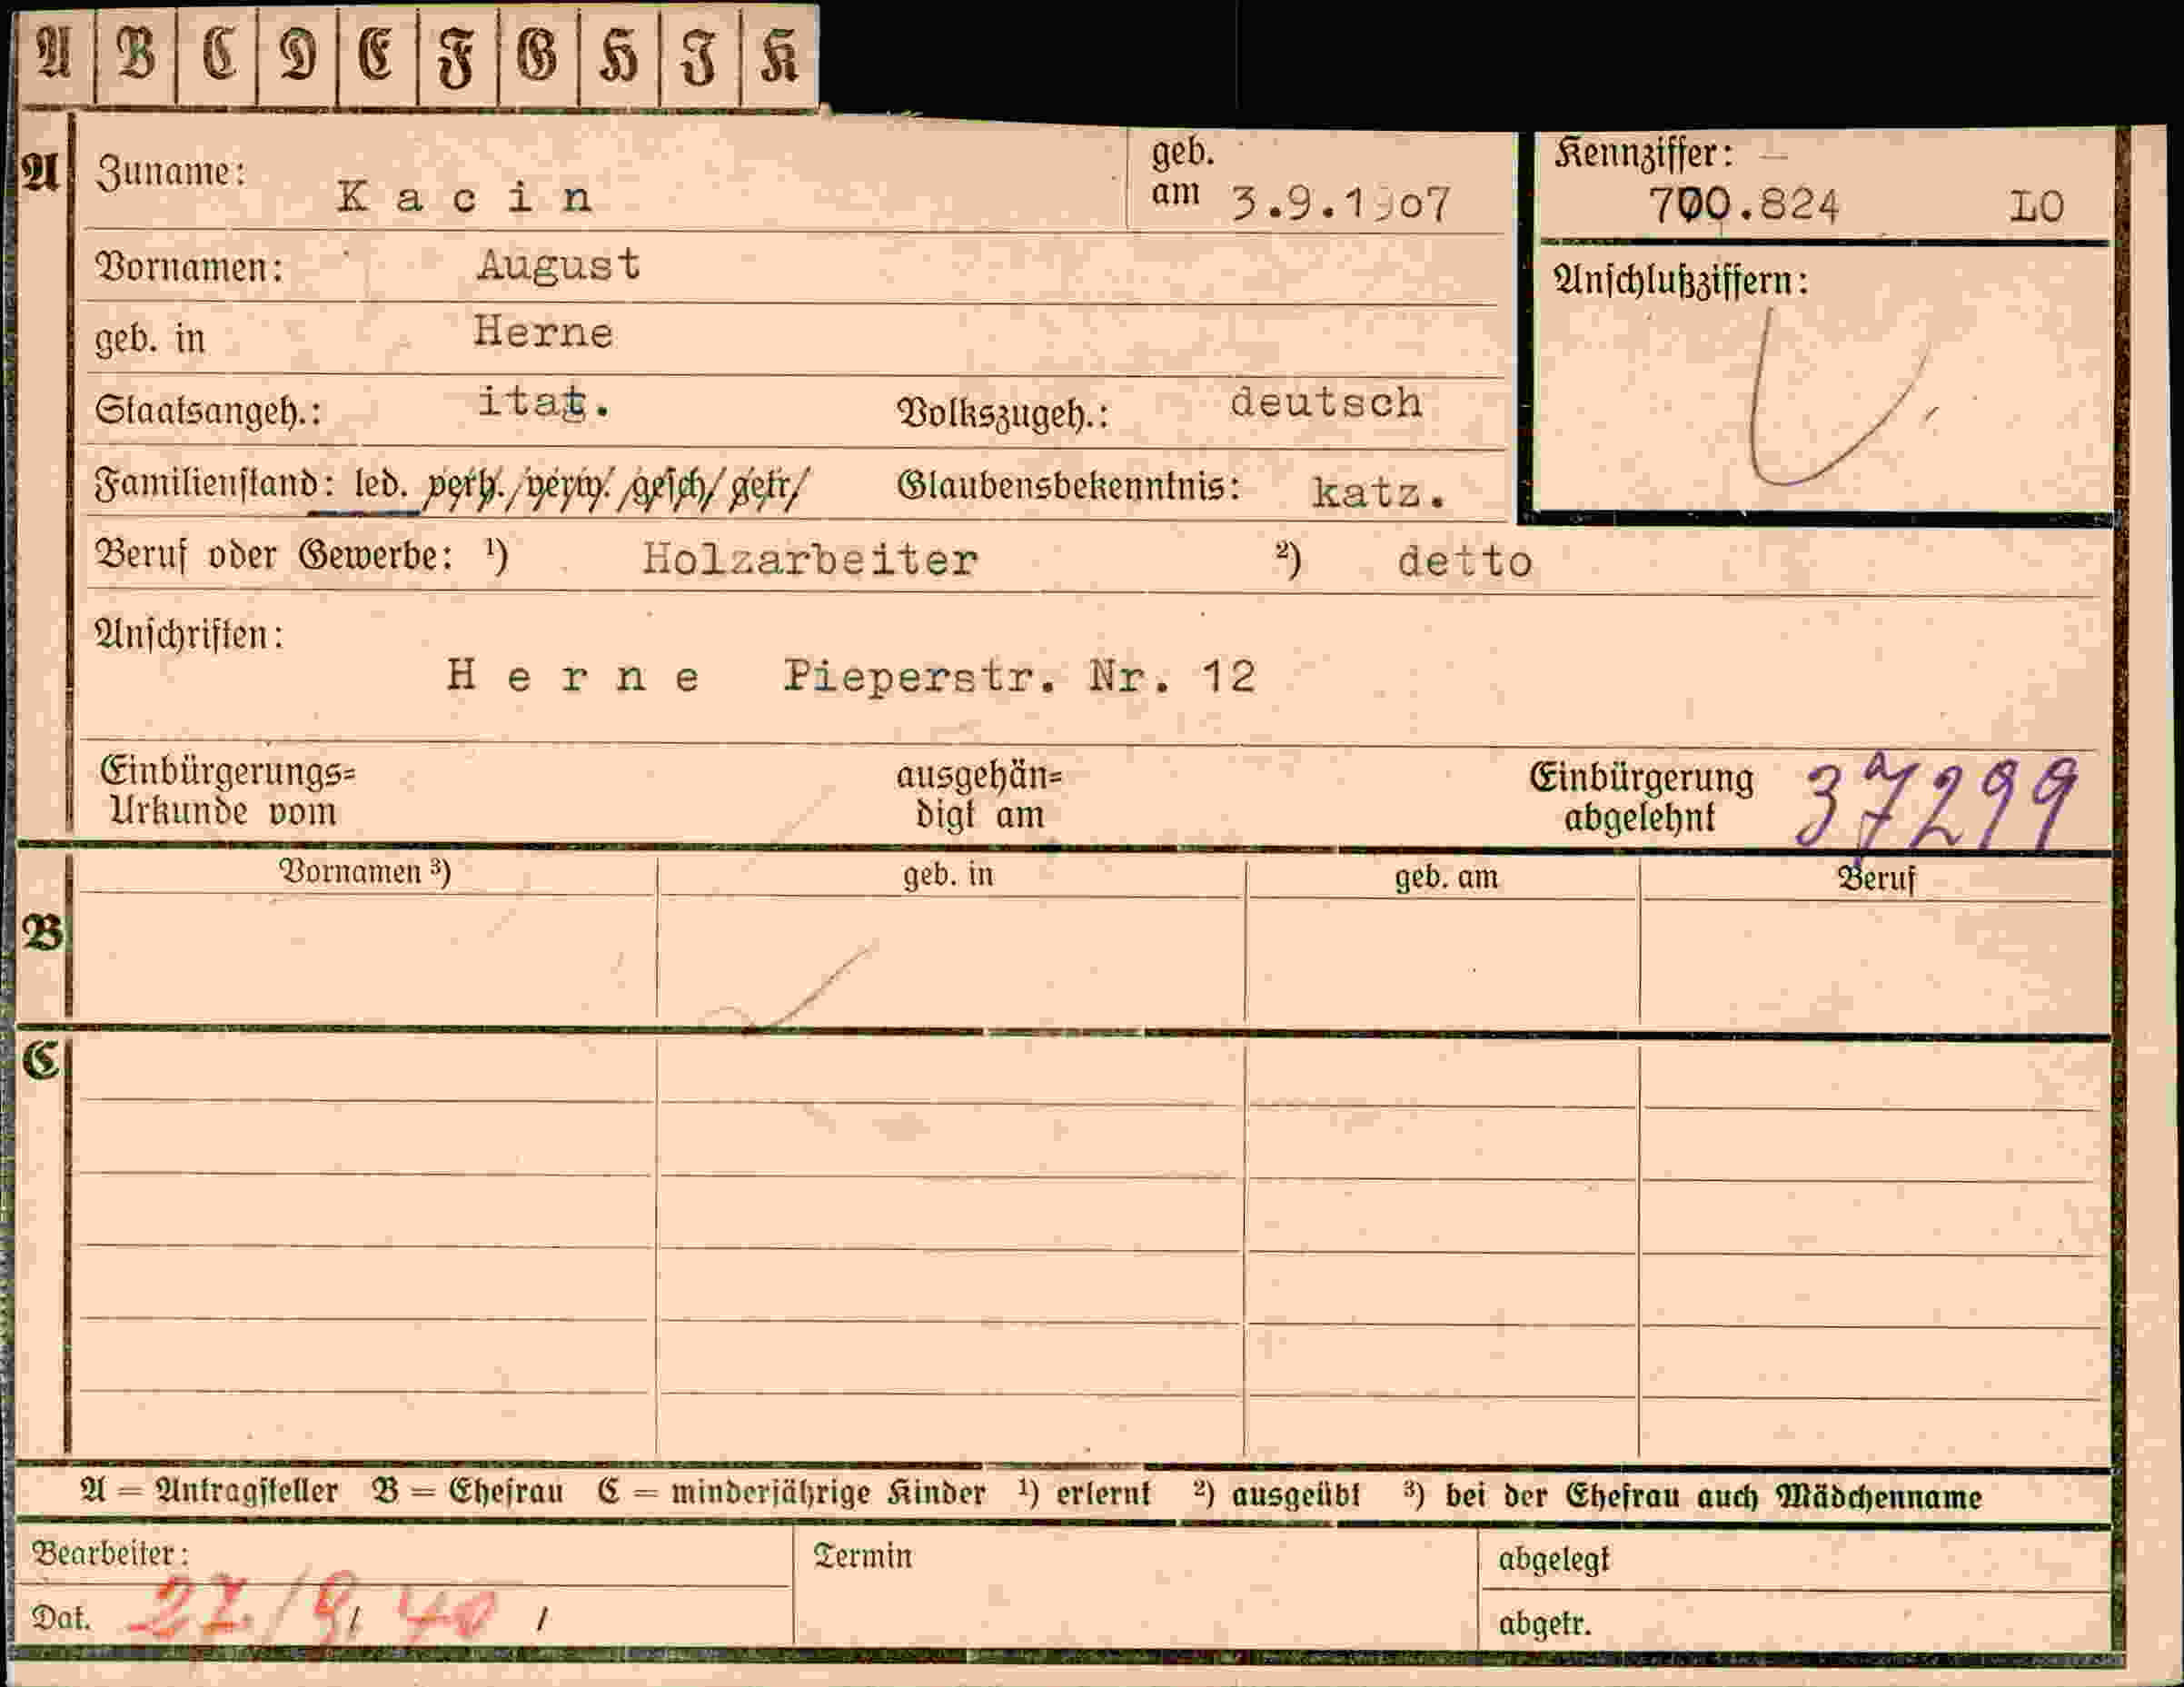 A B C D E F G H J K
A Zuname: Kacin geb. am 3.9.1907 Kennziffer: 700.824 LO
Vornamen: August Anschlußziffern:
geb. in Herne
Staatsangeh.: itat. Volkszugeh.: deutsch
Familienstand: led. verh. verw. gesch. getr. Glaubensbekenntnis: katz.
Beruf oder Gewerbe: ¹) Holzarbeiter ²) detto
Anschriften:
Herne Pieperstr. Nr. 12
Einbürgerungs= ausgehän= Einbürgerung 37299
Urkunde vom digt am abgelehnt
B Vornamen ³) geb. in geb. am Beruf
C
A = Antragsteller B = Ehefrau C = minderjährige Kinder ¹) erlernt ²) ausgeübt ³) bei der Ehefrau auch Mädchenname
Bearbeiter: Termin abgelegt
Dat. 27/9/40 / abgetr.